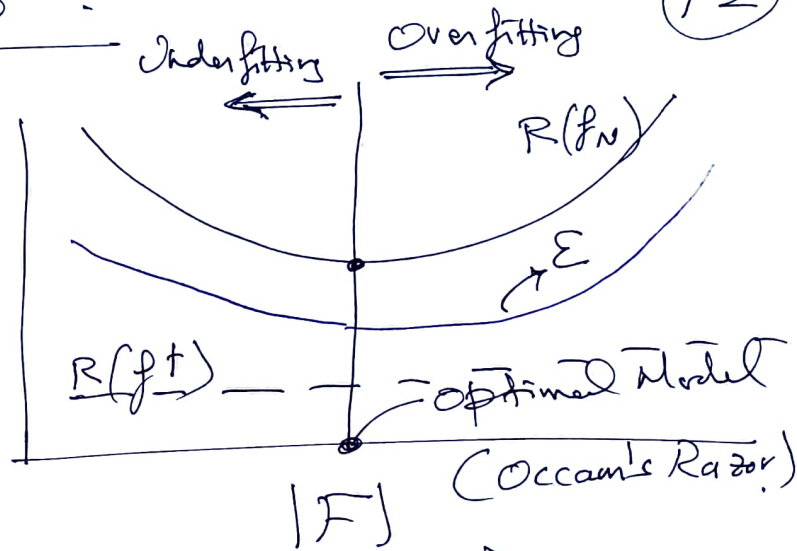 12
Underfitting
Overfitting
R(f_N)
ε
R(f†)
Optimal Model
(Occam's Razor)
|F|